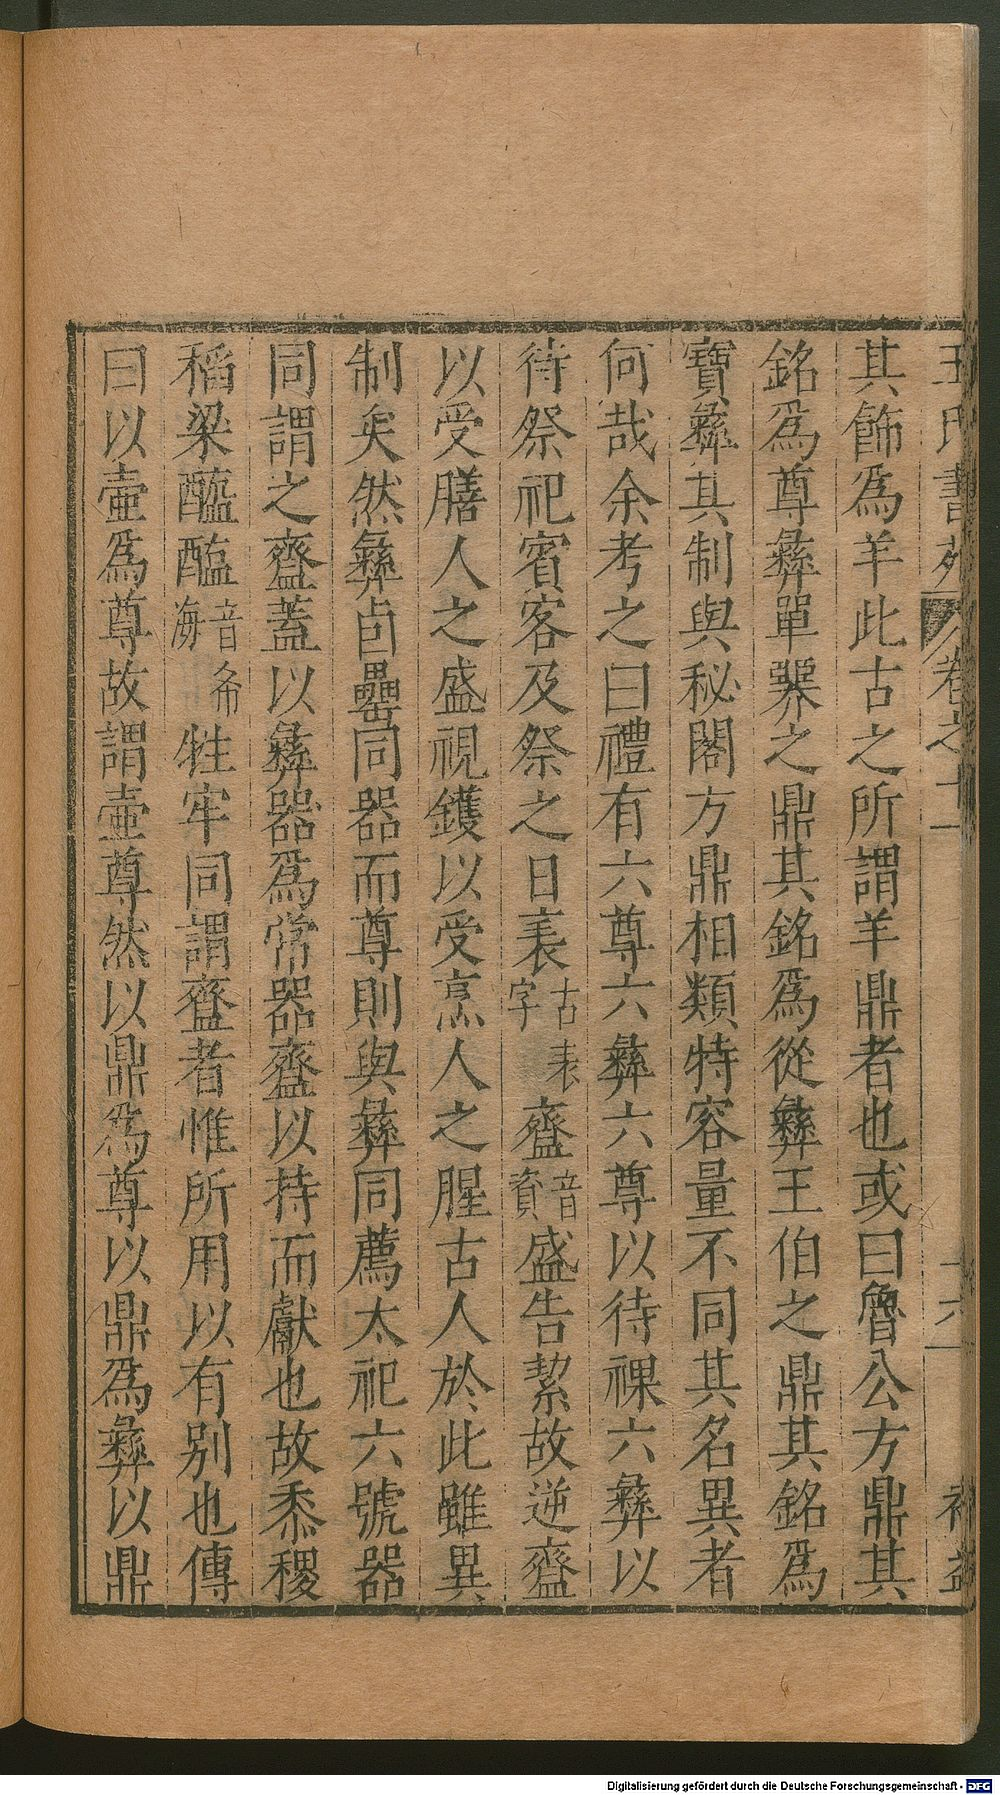 王氏書苑 卷之十一 十六 補益
其飾爲羊此古之所謂羊鼎者也或曰魯公方鼎其
銘爲尊彝單𢍰之鼎其銘爲從彝王伯之鼎其銘爲
寶彝其制與秘閣方鼎相類特容量不同其名異者
何哉余考之曰禮有六尊六彝六尊以待祼六彝以
待祭祀賓客及祭之日袠古表字齍音資盛告絜故逆齍
以受膳人之盛視鑊以受烹人之腥古人於此雖異
制矣然彝卣罍同器而尊則與彝同薦太祀六號器
同謂之齍蓋以彝器爲常器齍以持而獻也故黍稷
稻粱醯醢音希海牲牢同謂齍者惟所用以有别也傳
曰以壷爲尊故謂壷尊然以鼎爲尊以鼎爲彝以鼎
Digitalisierung gefördert durch die Deutsche Forschungsgemeinschaft - DFG